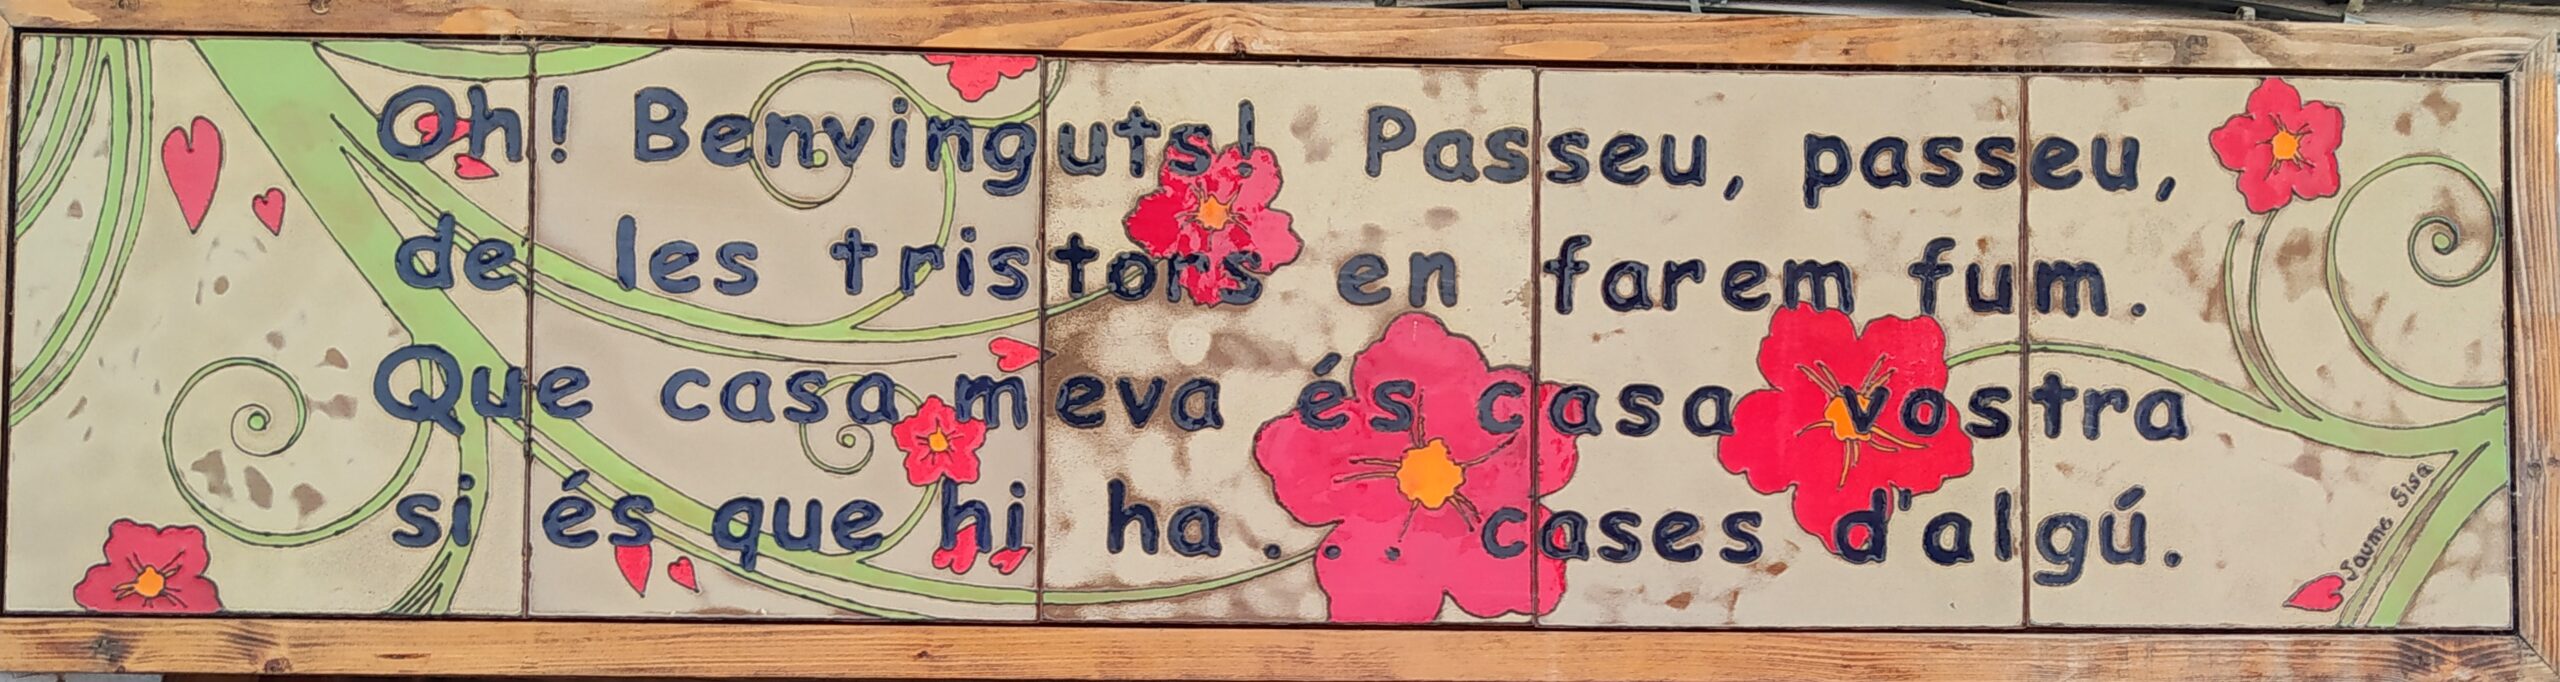 Oh! Benvinguts! Passeu, passeu,
de les tristors en farem fum.
Que casa meva és casa vostra
si és que hi ha... cases d'algú.
Jaume Sisa